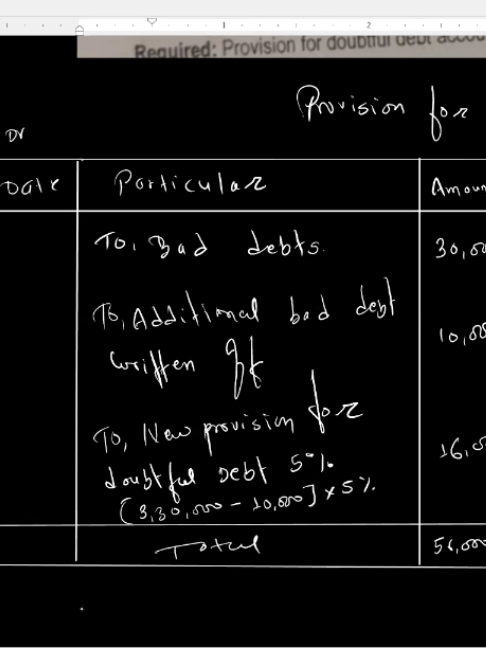 1 2
Required: Provision for doubtful debt accou
Provision for
Dr
Date Particular Amoun
To, Bad debts. 30,00
To, Additional bad debt 10,00
written off
To, New provision for 16,0
doubtful Debt 5%
[3,30,000 - 10,000] x 5%.
Total 56,000